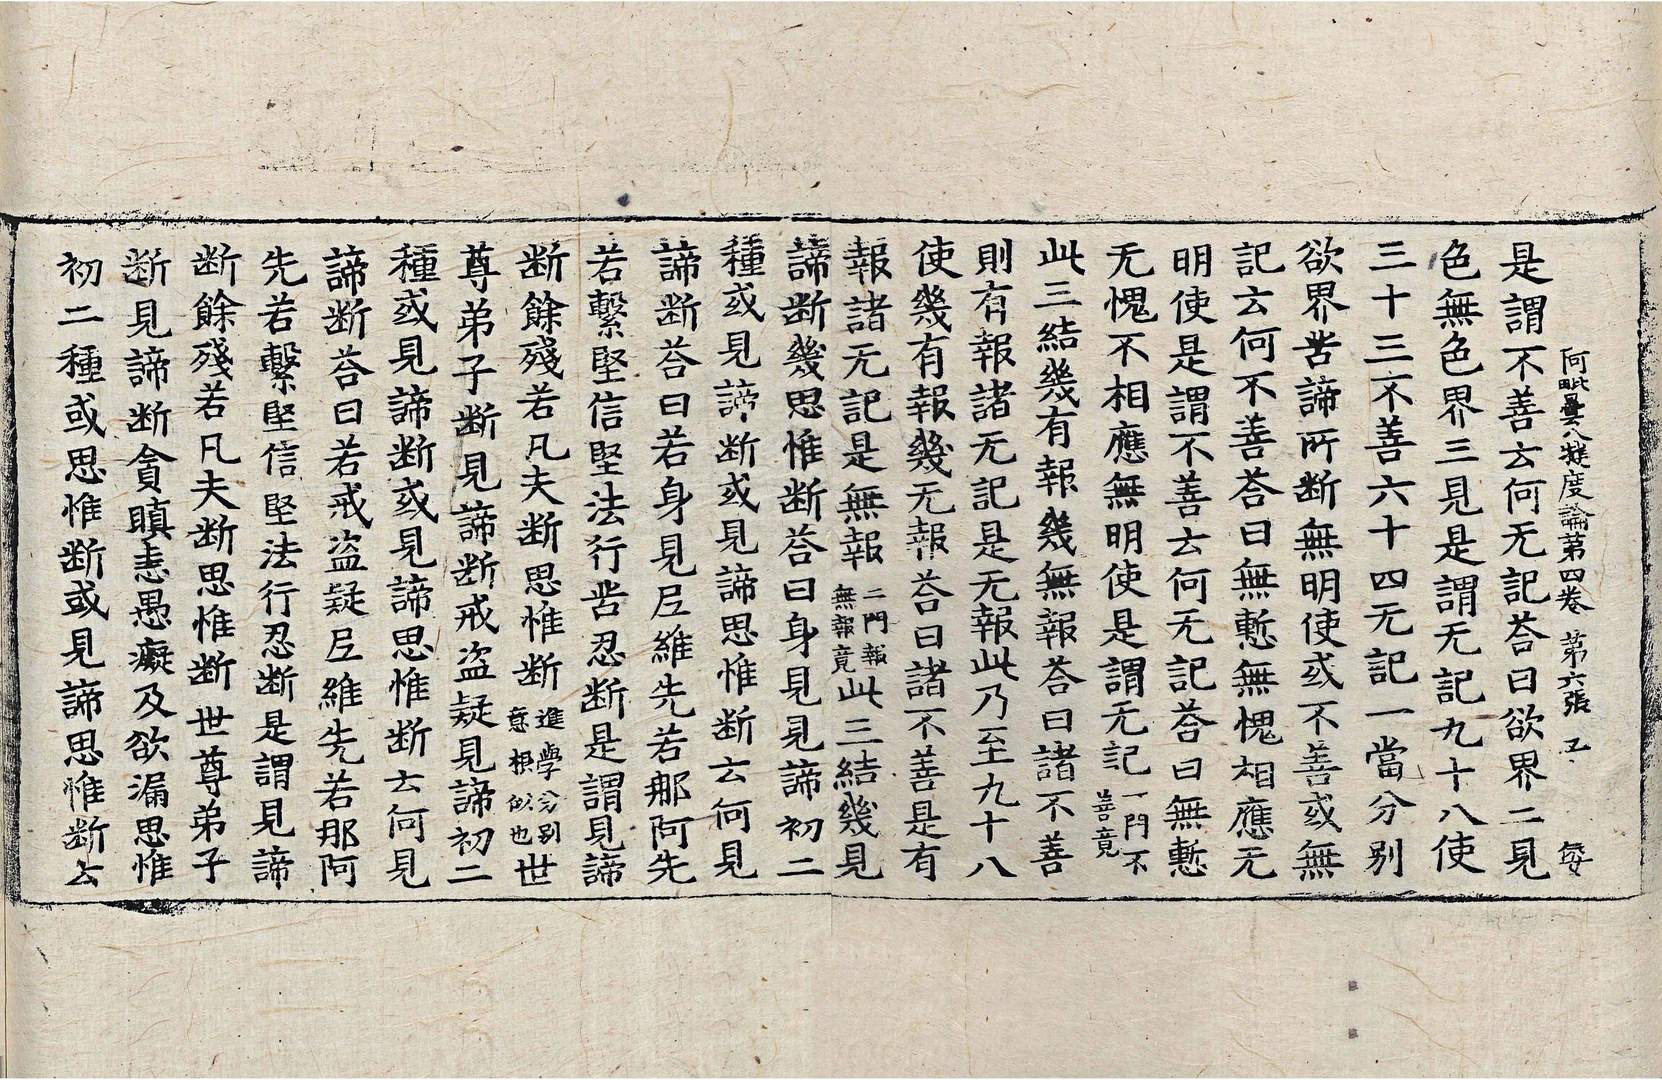 阿毗曇八揵度論第四卷　第六張　㛐
是謂不善云何无記荅曰欲界二見
色無色界三見是謂无記九十八使
三十三不善六十四无記一當分别
欲界苦諦所断無明使或不善或無
記云何不善荅曰無慙無愧相應无
明使是謂不善云何无記荅曰無慙
无愧不相應無明使是謂无記一門不善竟
此三結幾有報幾無報荅曰諸不善
則有報諸无記是无報此乃至九十八
使幾有報幾无報荅曰諸不善是有
報諸无記是無報二門報無報竟此三結幾見
諦断幾思惟断荅曰身見見諦初二
種或見諦断或見諦思惟断云何見
諦断荅曰若身見㞐維先若那阿先
若繫堅信堅法行苦忍断是謂見諦
断餘殘若凡夫断思惟断進學分别意想似也世
尊弟子断見諦断戒盗疑見諦初二
種或見諦断或見諦思惟断云何見
諦断荅曰若戒盗疑㞐維先若那阿
先若繫堅信堅法行忍断是謂見諦
断餘殘若凡夫断思惟断世尊弟子
断見諦断貪瞋恚愚癡及欲漏思惟
初二種或思惟断或見諦思惟断云